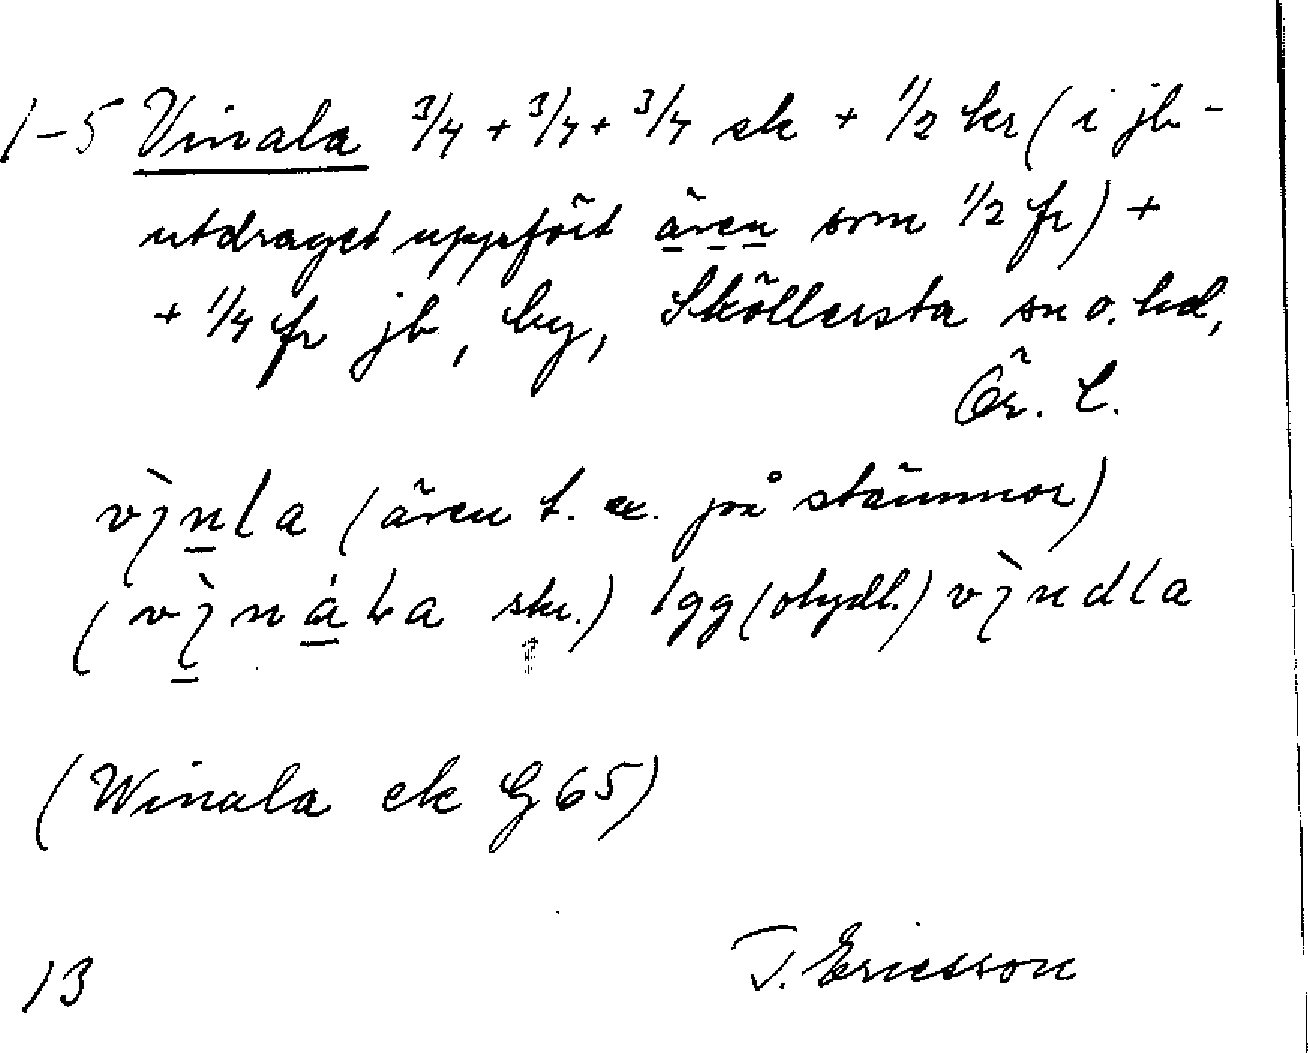 1–5 Vinala 3/4 + 3/4 + 3/4 sk + 1/2 kr (i jb-
utdraget uppfört även som 1/2 fr) +
+ 1/4 fr jb, by, Sköllersta sn o. hd,
Ör. l.
(även t. ex. på stämmor)
skr.) lgg (otydl.)
(Winala ek G 65)
13 J. Ericsson